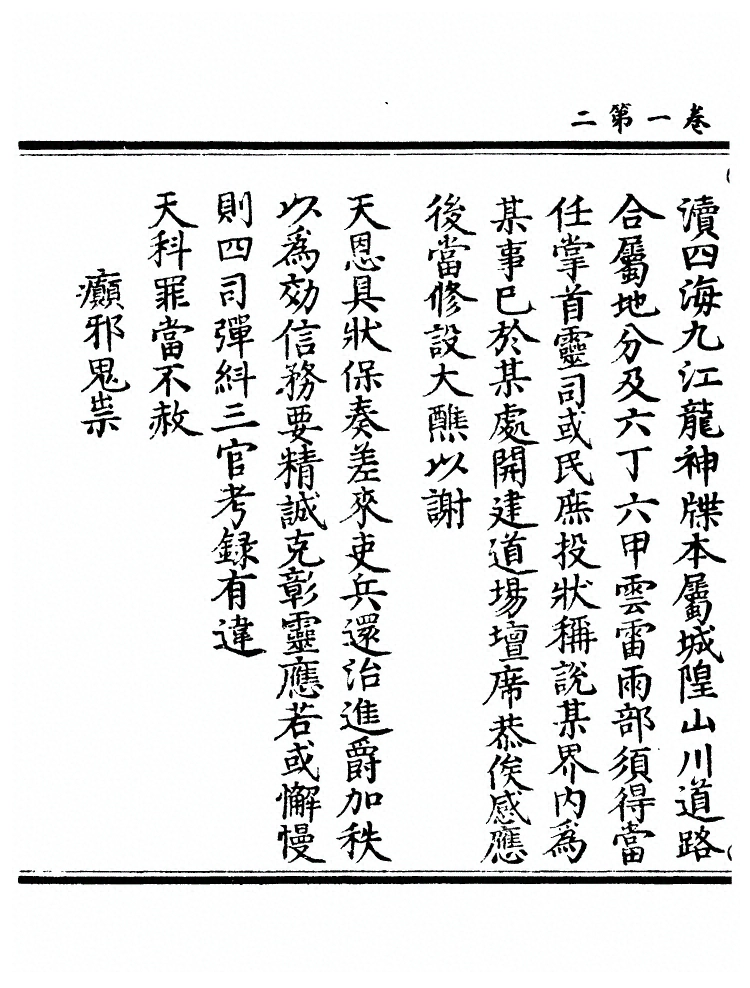 卷一第二
瀆四海九江龍神牒本屬城隍山川道路
合屬地分及六丁六甲雲雷雨部須得當
任掌首靈司或民庶投狀稱說某界內爲
某事已於某處開建道場壇席恭俟感應
後當修設大醮以謝
天恩具狀保奏差來吏兵還治進爵加秩
以爲効信務要精誠克彰靈應若或懈慢
則四司彈糾三官考録有違
天科罪當不赦
癲邪鬼祟